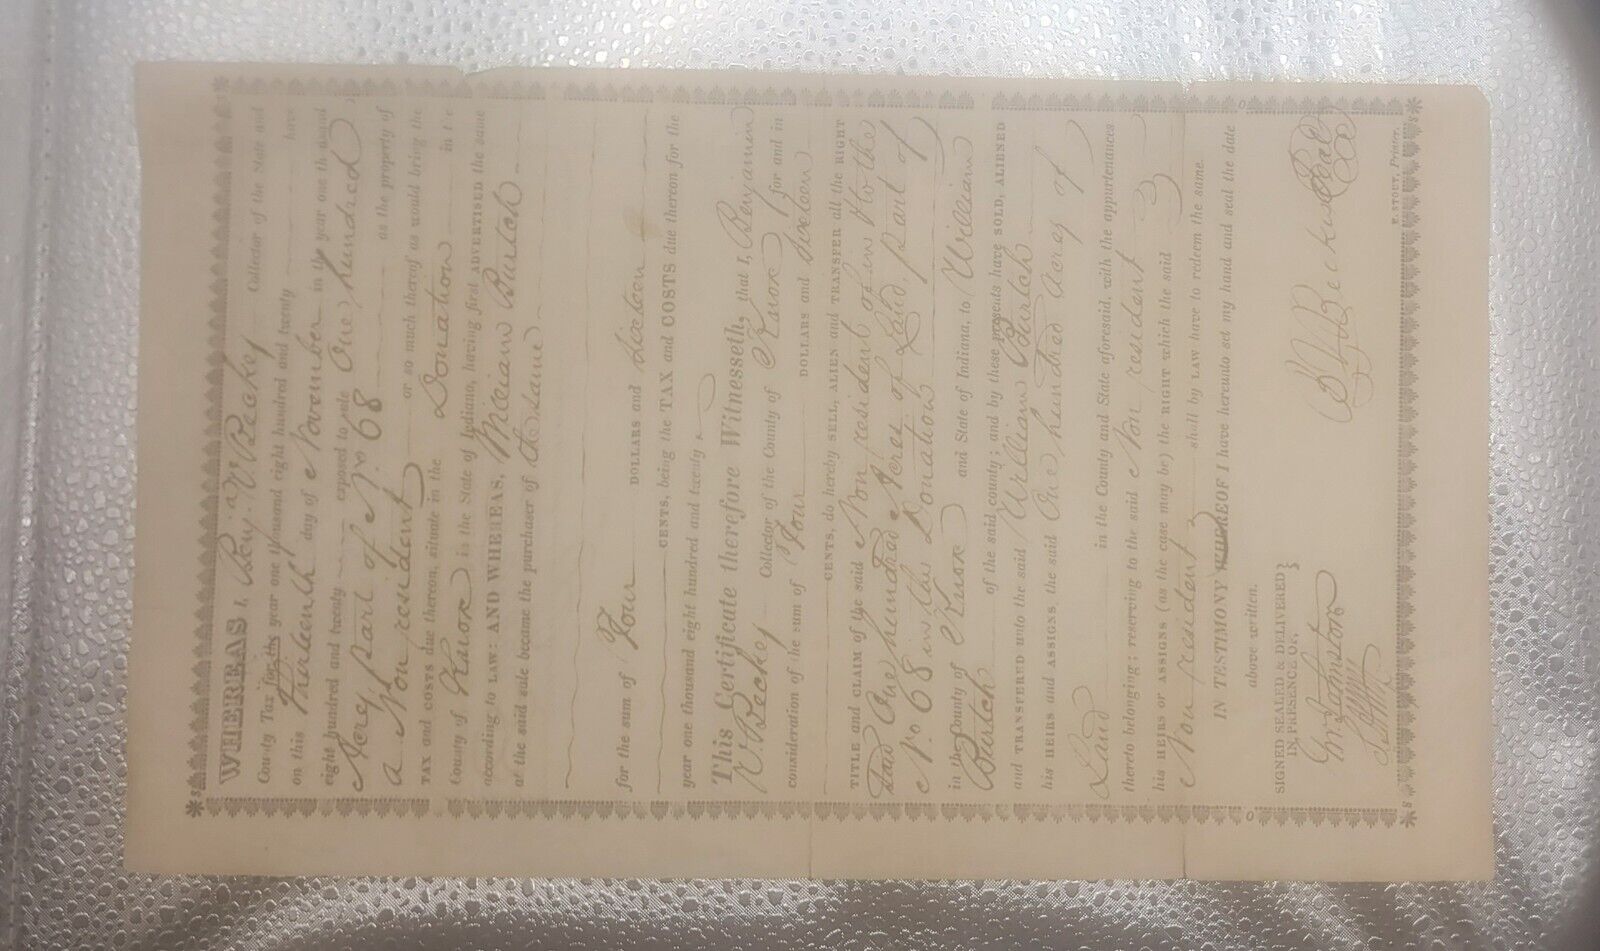 WHEREAS I, Benj.ⁿ V. Beckes Collector of the State and
County Tax for the year one thousand eight hundred and twenty have
on this Thirteenth day of November in the year one thousand
eight hundred and twenty exposed to sale One hundred
Acres part of No 68 as the property of
a Non resident or so much thereof as would bring the
TAX and COSTS due thereon, situate in the Donation in the
County of Knox in the State of Indiana, having first ADVERTISED the same
according to LAW: AND WHEREAS, William Burtch
at the said sale became the purchaser of the same
for the sum of Four DOLLARS and sixteen
CENTS, being the TAX and COSTS due thereon for the
year one thousand eight hundred and twenty
This Certificate therefore Witnesseth, that I, Benjamin
V. Beckes Collector of the County of Knox for and in
consideration of the sum of Four DOLLARS and sixteen
CENTS, do hereby SELL, ALIEN and TRANSFER all the RIGHT
TITLE and CLAIM of the said Non resident of in & to the
said One hundred Acres of Land part of
No 68 in the Donation
in the County of Knox and State of Indiana, to William
Burtch of the said county; and by these presents have SOLD, ALIENED
and TRANSFERED unto the said William Burtch
his HEIRS and ASSIGNS, the said One hundred acres of
Land in the County and State aforesaid, with the appurtenances
thereto belonging; reserving to the said Non resident
his HEIRS or ASSIGNS (as the case may be) the RIGHT which the said
Non resident shall by LAW have to redeem the same.
IN TESTIMONY WHEREOF I have hereunto set my hand and seal the date
above written.
SIGNED SEALED & DELIVERED
IN PRESENCE OF,
Johnston
B V Beckes Seal
E. STOUT, Printer.